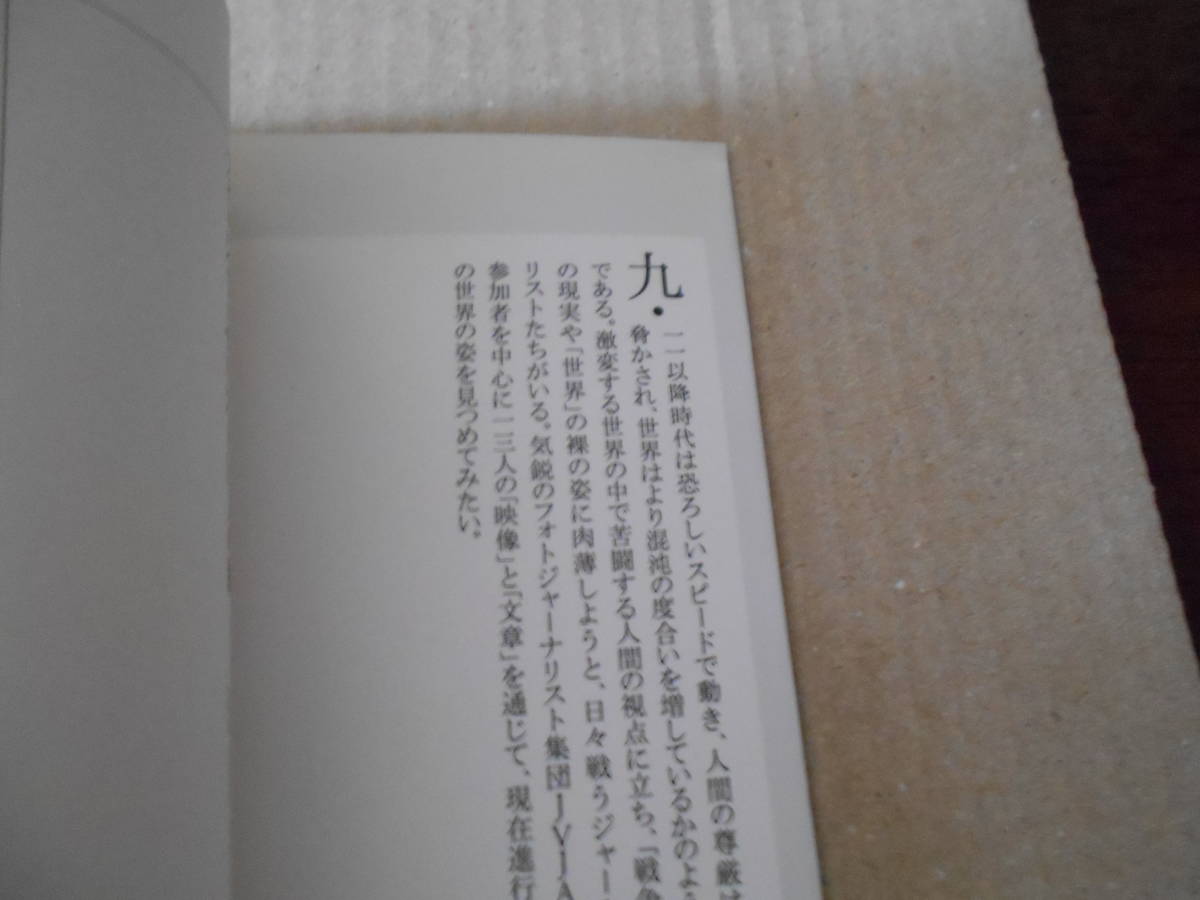 九・一一以降時代は恐ろしいスピードで動き、人間の尊厳は
脅かされ、世界はより混沌の度合いを増しているかのよう
である。激変する世界の中で苦闘する人間の視点に立ち、「戦争
の現実や「世界」の裸の姿に肉薄しようと、日々戦うジャー
リストたちがいる。気鋭のフォトジャーナリスト集団JVJA
参加者を中心に一三人の「映像」と「文章」を通じて、現在進行
の世界の姿を見つめてみたい。